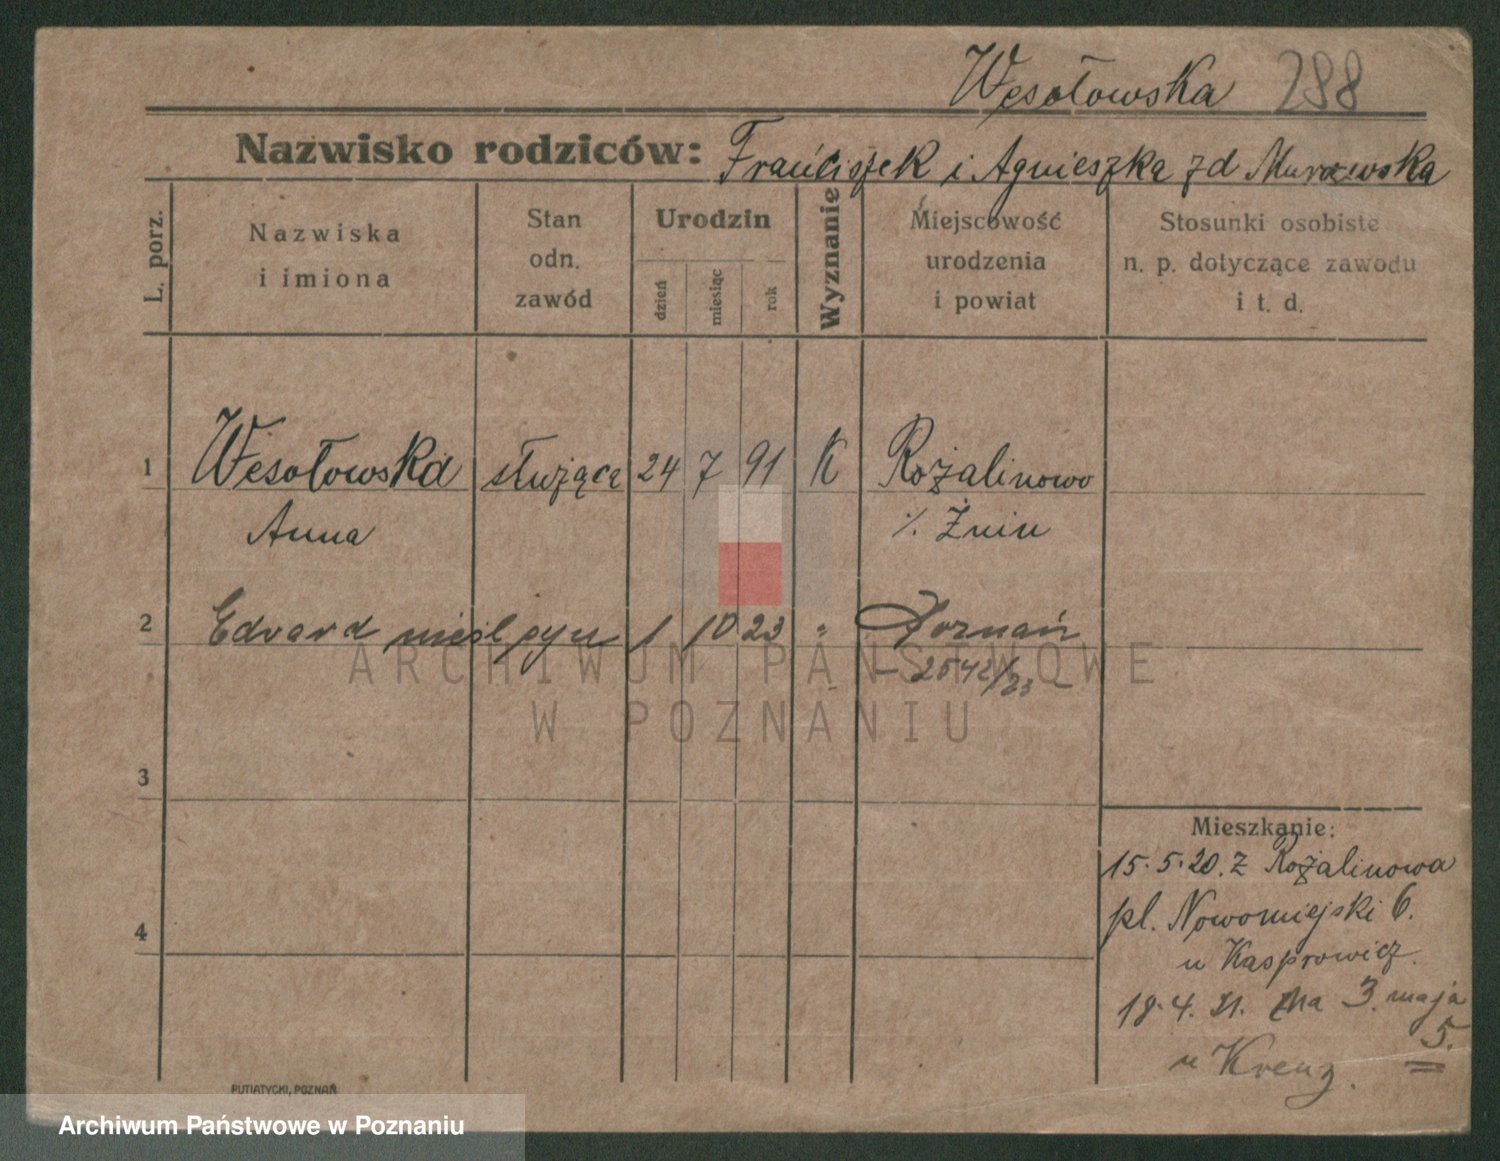 Węsołowska 288
Nazwisko rodziców: Franciszek i Agnieszka zd Murawska
L. porz.
Nazwiska
i imiona
Stan
odn.
zawód
Urodzin
dzień
miesiąc
rok
Wyznanie
Miejscowość
urodzenia
i powiat
Stosunki osobiste
n. p. dotyczące zawodu
i t. d.
1 Węsołowska służąca 24 7 91 K Rożalinowo
Anna ٪. Żnin
2 Edvard nieśl syn 1 10 23 " Poznań
- 2542/23 -
3
4
Mieszkanie:
15.5.20. z Rożalinowa
pl. Nowomiejski 6.
u Kasprowicz.
18.4. 21. na 3. maja
5.
u Krenz.
PUTIATYCKI, POZNAŃ
ARCHIWUM PAŃSTWOWE
W POZNANIU
Archiwum Państwowe w Poznaniu